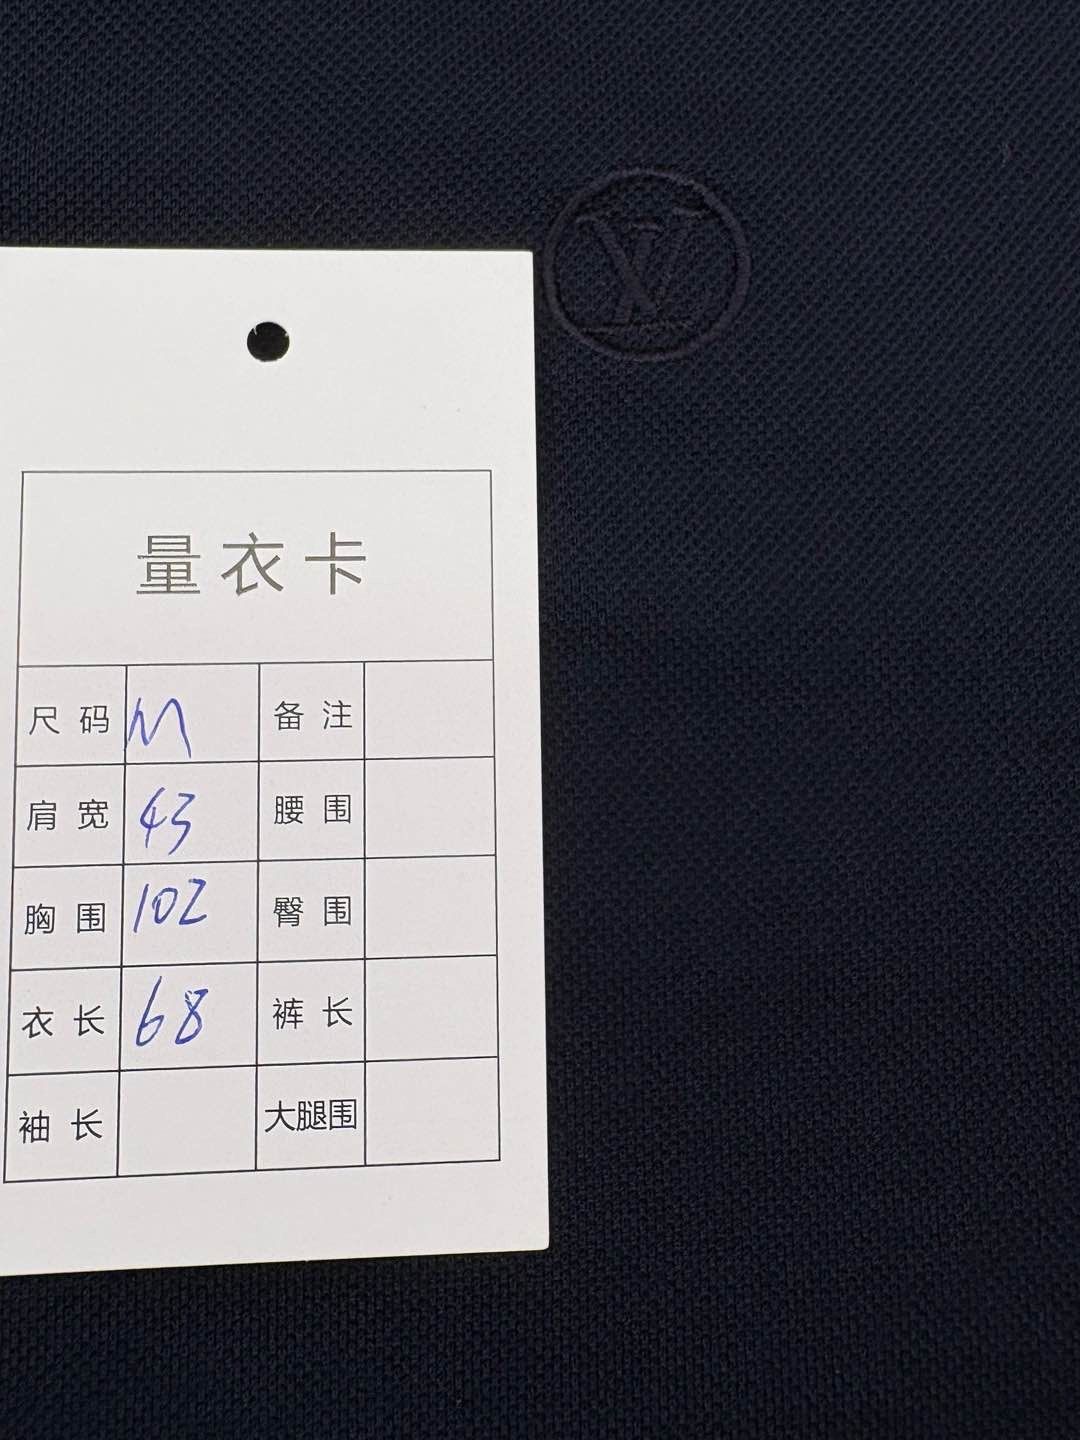 LV
量衣卡
尺码 M 备注
肩宽 43 腰围
胸围 102 臀围
衣长 68 裤长
袖长 大腿围